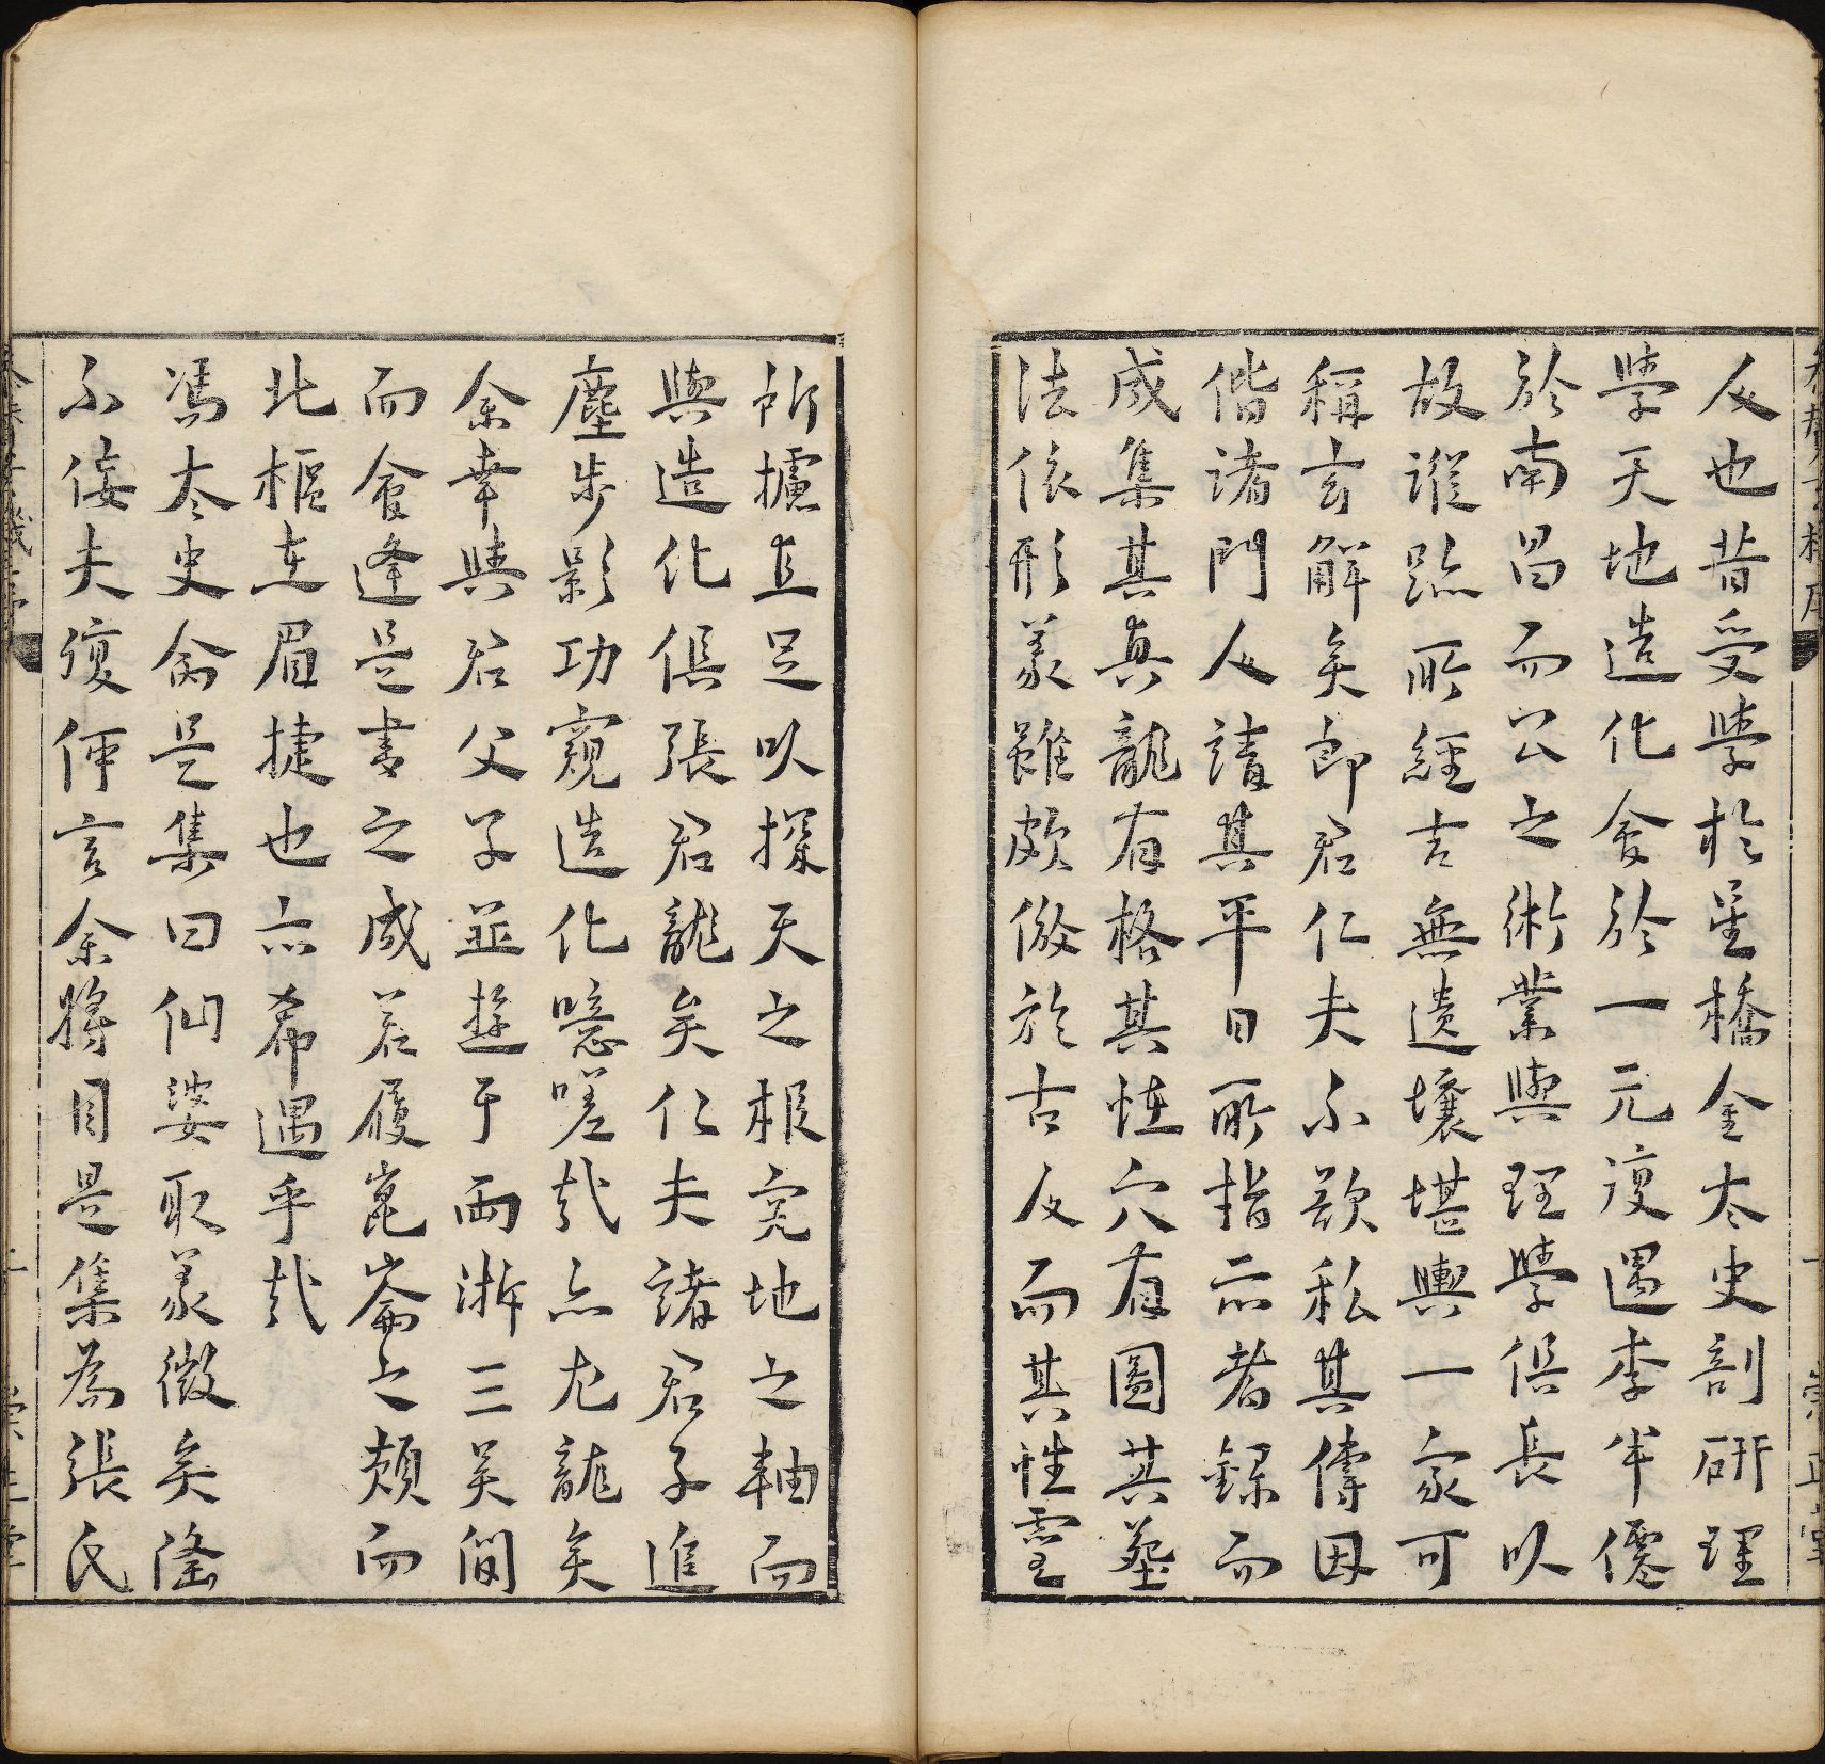 人也昔受學於星橋金太史剖研理
學天地造化會於一元復遇李半僊
於南昌而公之術業與理學俱長以
故蹤跡所經吉無遺壤堪輿一家可
稱玄解矣郎君仁夫不欲私其傳因
偕諸門人請其平日所指示者錄而
成集其真龍有格其怪穴有圖其葬
法依形義雖頗倣於古人而其性靈
所攄直足以探天之根究地之軸而
與造化俱張君龍矣仁夫諸君子進
塵步影功窺造化噫嗟哉亦尤龍矣
余幸與君父子並遊于兩浙三吳間
而會逢是書之成若履崑崙之頰而
北樞在眉捷也亦希遇乎哉
馮太史侖是集曰仙婆取義微矣隆
不佞夫復何言余將目是集為張氏
一
崇正堂